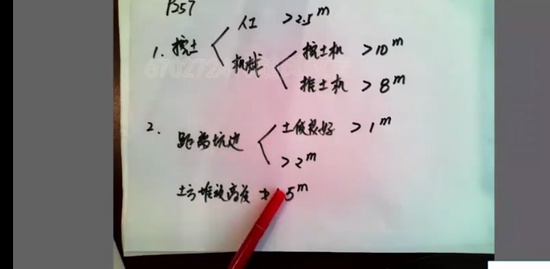 P57
人工 >2.5m
1. 挖土
机械
挖土机 >10m
推土机 >8m
2. 距离坑边
土质良好 >1m
>2m
土方堆放高度 5m